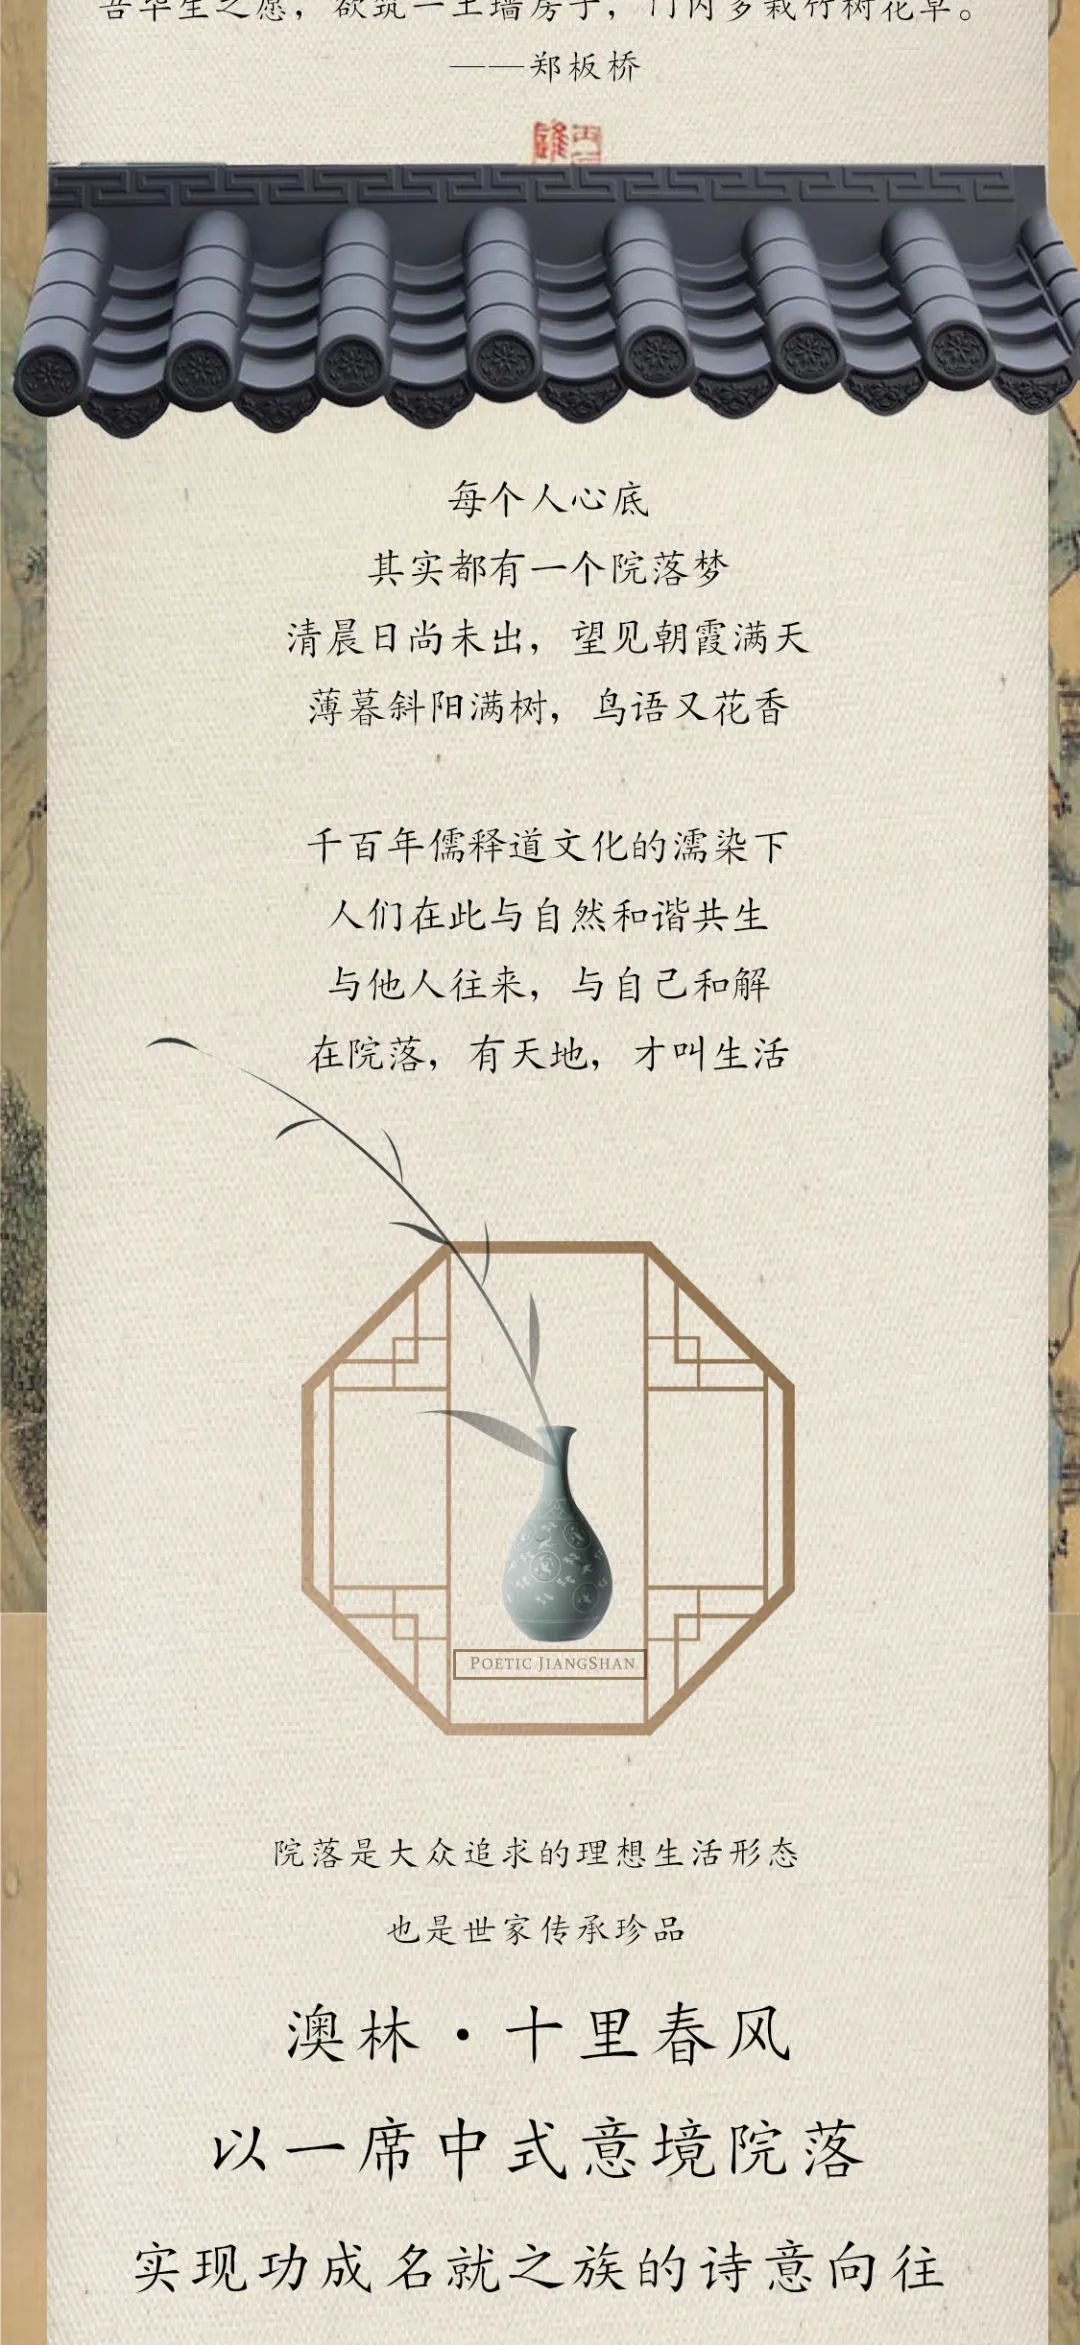 吾毕生之愿，欲筑一土墙房子，门内多栽竹树花草。
——郑板桥
每个人心底
其实都有一个院落梦
清晨日尚未出，望见朝霞满天
薄暮斜阳满树，鸟语又花香
千百年儒释道文化的濡染下
人们在此与自然和谐共生
与他人往来，与自己和解
在院落，有天地，才叫生活
POETIC JIANGSHAN
院落是大众追求的理想生活形态
也是世家传承珍品
澳林·十里春风
以一席中式意境院落
实现功成名就之族的诗意向往